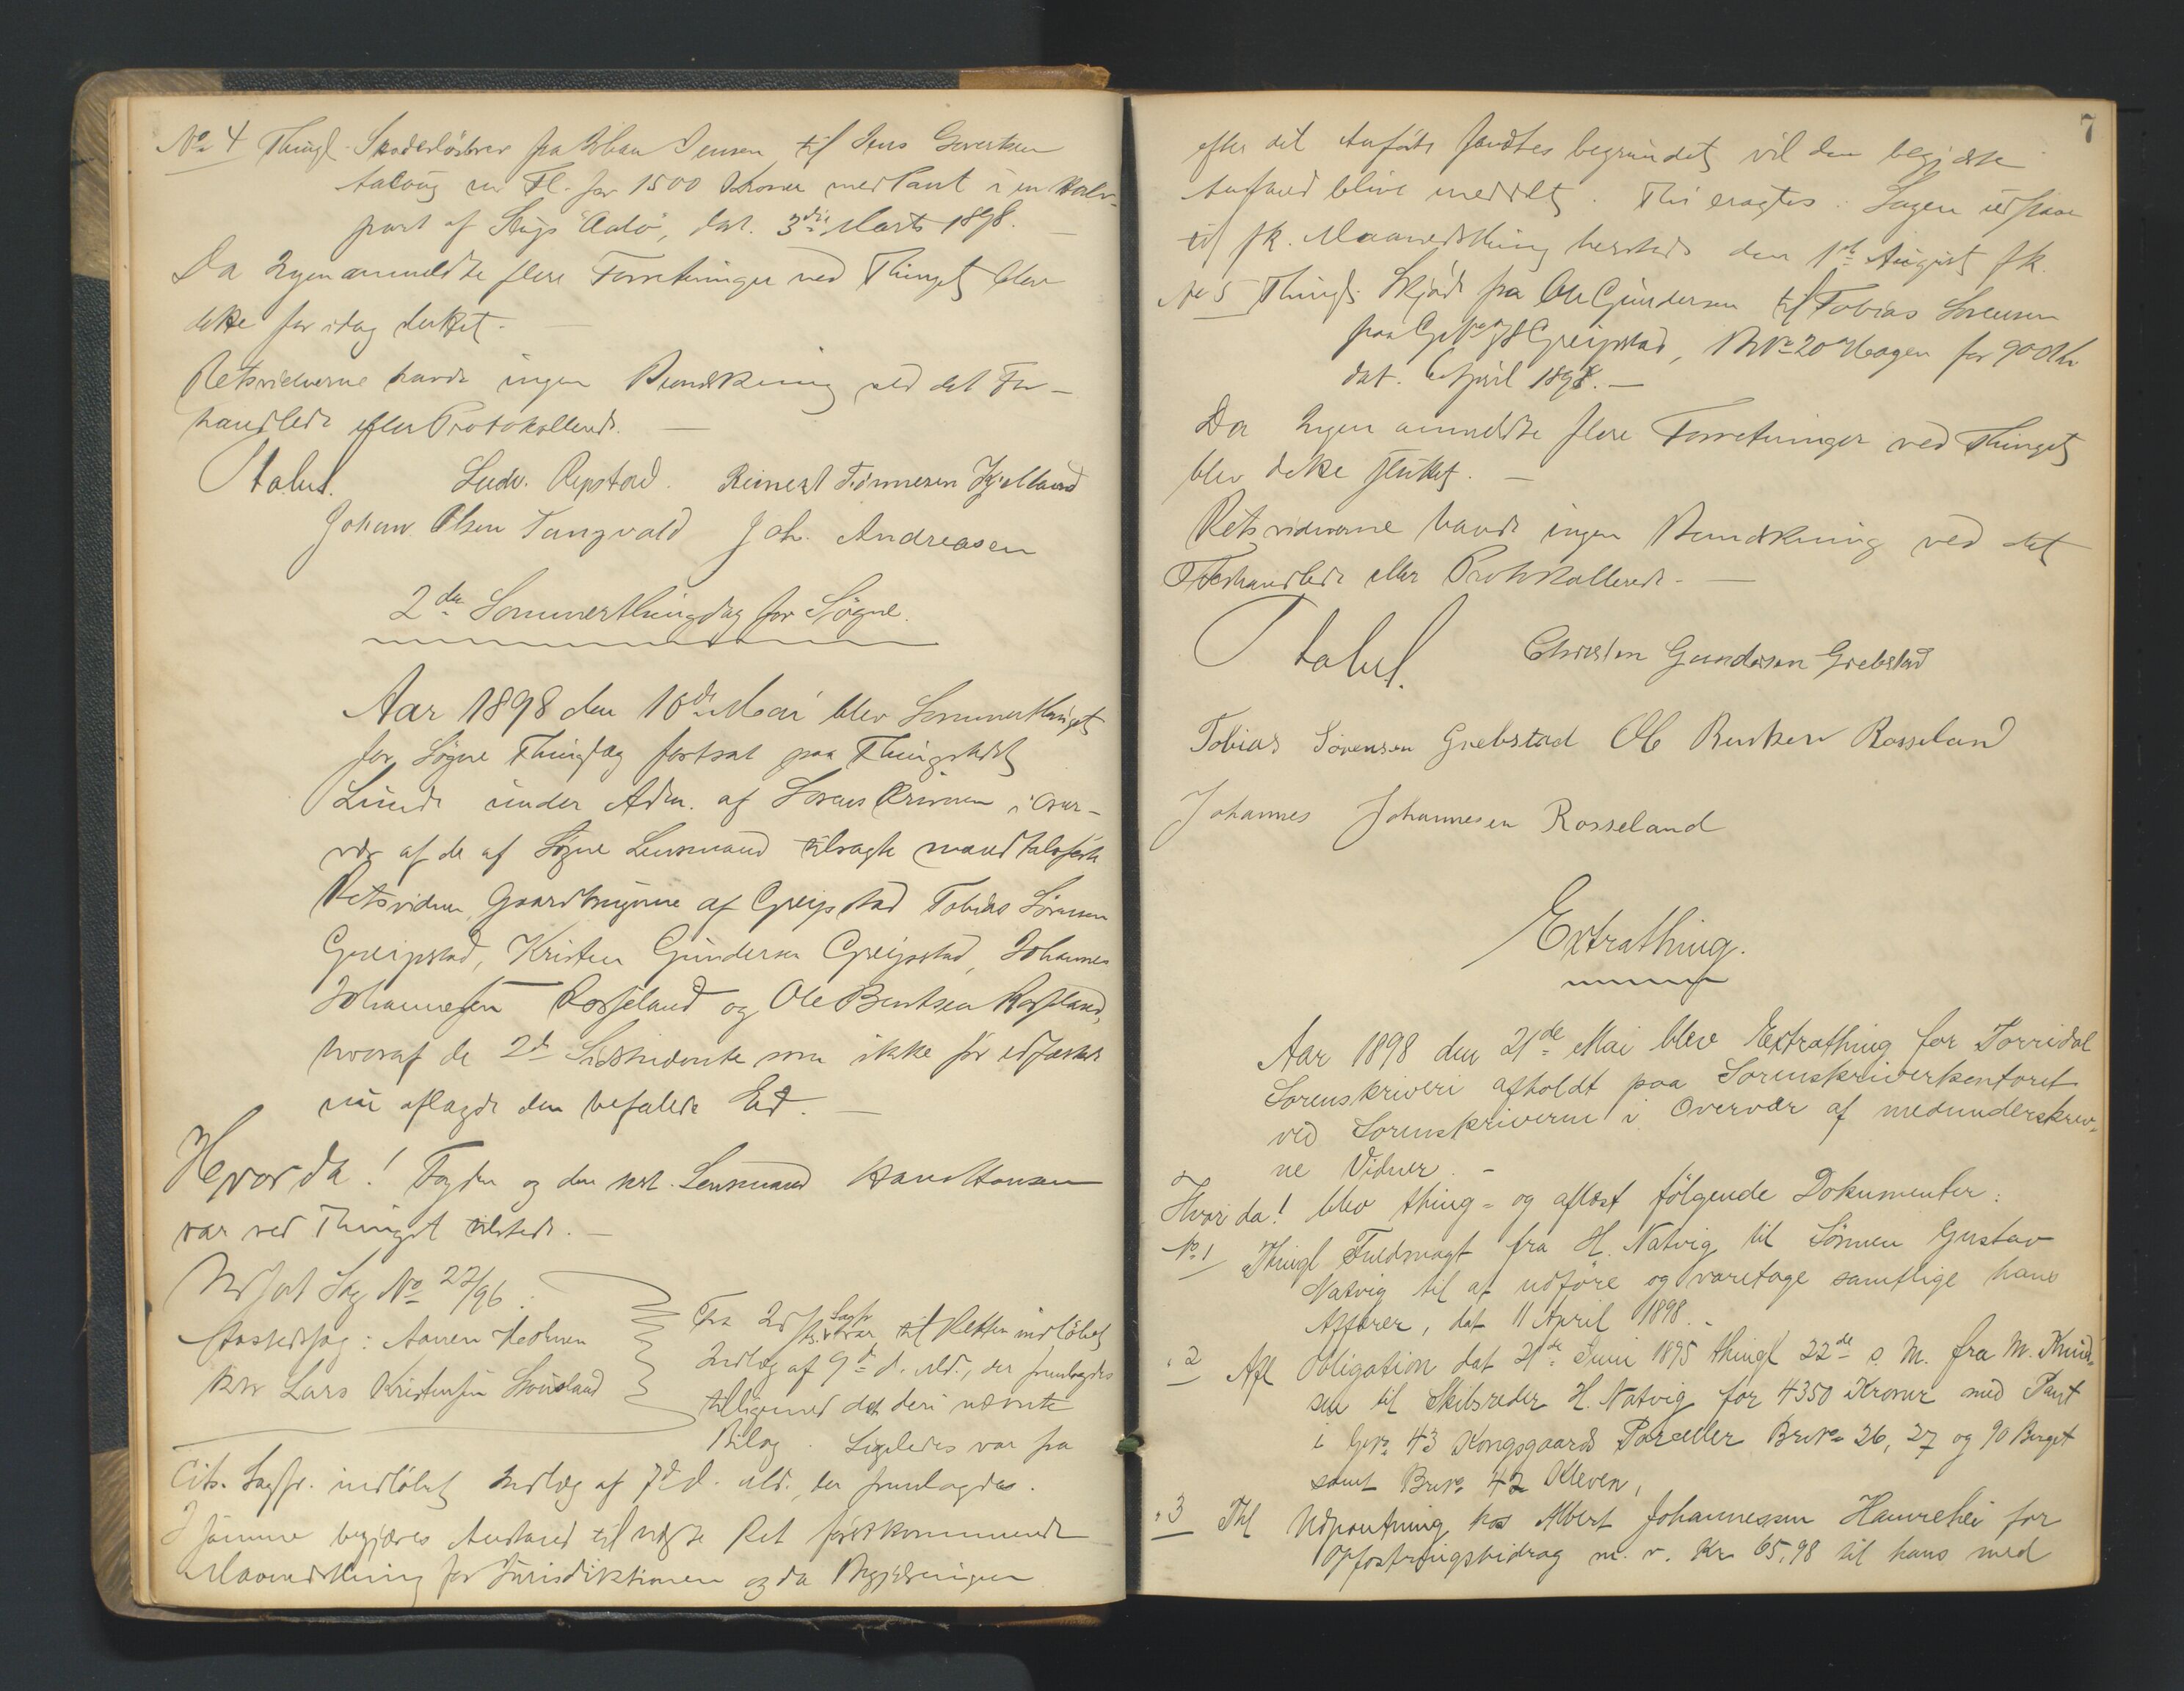 No 4 Thingl. Skadesløsbrev fra Johan Jensen til Jens Gvertsen
Aalaug m Fl. for 1500 Kroner med Pant i en Halv-
part af Slup "Aadø", dat. 3die Marts 1898. —
Da Ingen anmeldte flere Forretninger ved Thinget blev
dette for idag sluttet. —
Retsvidnerne havde ingen Bemærkning ved det For-
handlede eller Protokollerede. —
Stabel. Ludv. Repstad. Reinert Tønnesen Kjelland
Johan Olsen Tangvald Joh. Andreasen
2den Sommerthingdag for Søgne.
Aar 1898 den 10de Mai blev Sommerthinget
for Søgne Thinglag fortsat paa Thingstedet
Lunde under Adm. af Sorenskriveren i Over-
vær af de af Søgne Lensmand tilsagte mandtalsførte
Retsvidner, Gaardbrugerne af Greipstad Tobias Sörensen
Greipstad, Kristen Gundersen Greipstad, Johannes
Johannesen Rosseland og Ole Bentsen Rosseland,
hvoraf de 2de Sidstnævnte som ikke før edfæstede
nu aflagde den befalede Ed. —
Hvor da! Fogden og den kst. Lensmand Hans Hansen
var ved Thinget tilstede. —
Udsat Sag No 27/96:
Aastedssag: Aanen
ktr Lars Kristensen
Fra Indst. Sagfr. var til Retten indløbet
Indlæg af 9de d. Md., der fremlagdes
tilligemed det deri nævnte
Bilag. Ligeledes var fra
Cits. Sagfr. indløbet Indlæg af 7de d. Md., der fremlagdes.
I samme begjæres Anstand til næste Ret førstkommende
Maanedsthing for Jurisdiktionen og da Begjæringen
7
efter det Anførte fandtes begrundet vil den begjærte
Anstand blive meddelt. Thi eragtes: Sagen udsættes
til fk. Maanedsthing hersteds den 1ste August fk.
No 5 Thingl. Skjøde fra Ole Gundersen til Tobias Sørensen
paa G No 78 Greipstad, B No 20 Hagen for 900 Kr
dat. 6 April 1898. —
Da Ingen anmeldte flere Forretninger ved Thinget
blev dette sluttet. —
Retsvidnerne havde ingen Bemærkning ved det
Forhandlede eller Protokollerede. —
Stabel. Christen Gundersen Grebstad
Tobias Sörensen Grebstad Ole Bentsen Rosseland
Johannes Johannesen Rosseland
Extrathing.
Aar 1898 den 21de Mai blev Extrathing for Torridal
Sorenskriveri afholdt paa Sorenskriverkontoret
ved Sorenskriveren i Overvær af medunderskrev-
ne Vidner. —
Hvor da! blev thing- og aflæst følgende Dokumenter:
No 1 Thingl Fuldmagt fra H. Natvig til Sönnen Gustav
Natvig til at udföre og varetage samtlige hans
Affærer, dat 11 April 1898. -
" 2 Afl Obligation dat 21de Juni 1895 thingl 22de s. M. fra M. Knud-
sen til Skibsreder H. Natvig for 4350 Kroner med Pant
i Gno 43 Kongsgaards Parceller Brno 26, 27 og 90 Berget
samt Brno 42 Kleven,
" 3 Thl Udpantning hos Albert Johannessen Hamrehei for
Opfostringsbidrag m. v. Kr 65,98 til hans med